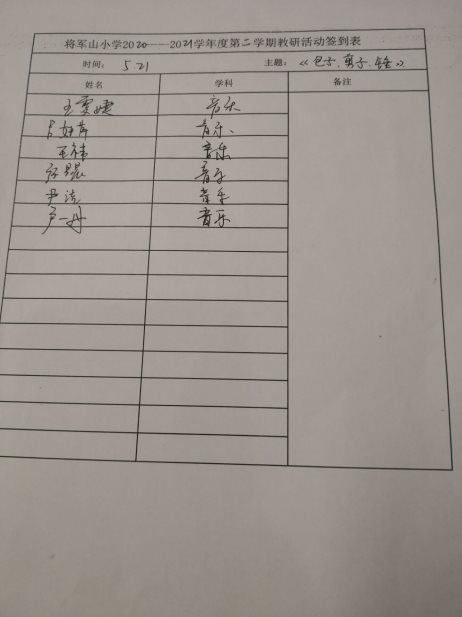 将军山小学2020——2021学年度第二学期教研活动签到表
时间: 5.21 主题: 《包子、剪子、锤》
姓名 学科 备注
王雯婕 音乐
音乐、
王祎 音乐
音乐
尹洁 音乐
卢一丹 音乐